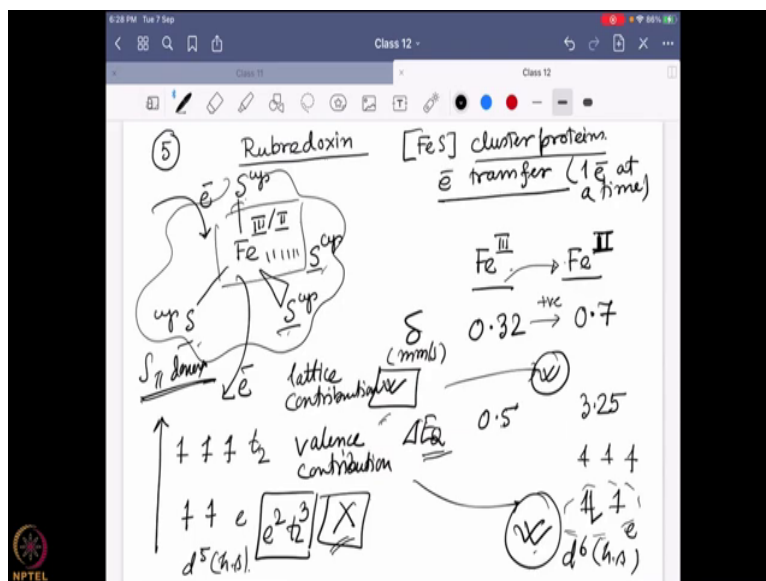 6:28 PM Tue 7 Sep
86%
Class 12
Class 11
Class 12
5
Rubredoxin
[FeS] cluster proteins
ē transfer (1 ē at a time)
ē
S cys
III/II
Fe
S cys
S cys
cys S
S π donor
ē
Fe III → Fe II
δ (mm/s)
0.32 +ve → 0.7
lattice contribution ✓
✓
ΔEQ
0.5
3.25
t2
valence contribution
e
e² t2³
X
✓
e
d⁵ (h.s).
d⁶ (h.s)
NPTEL